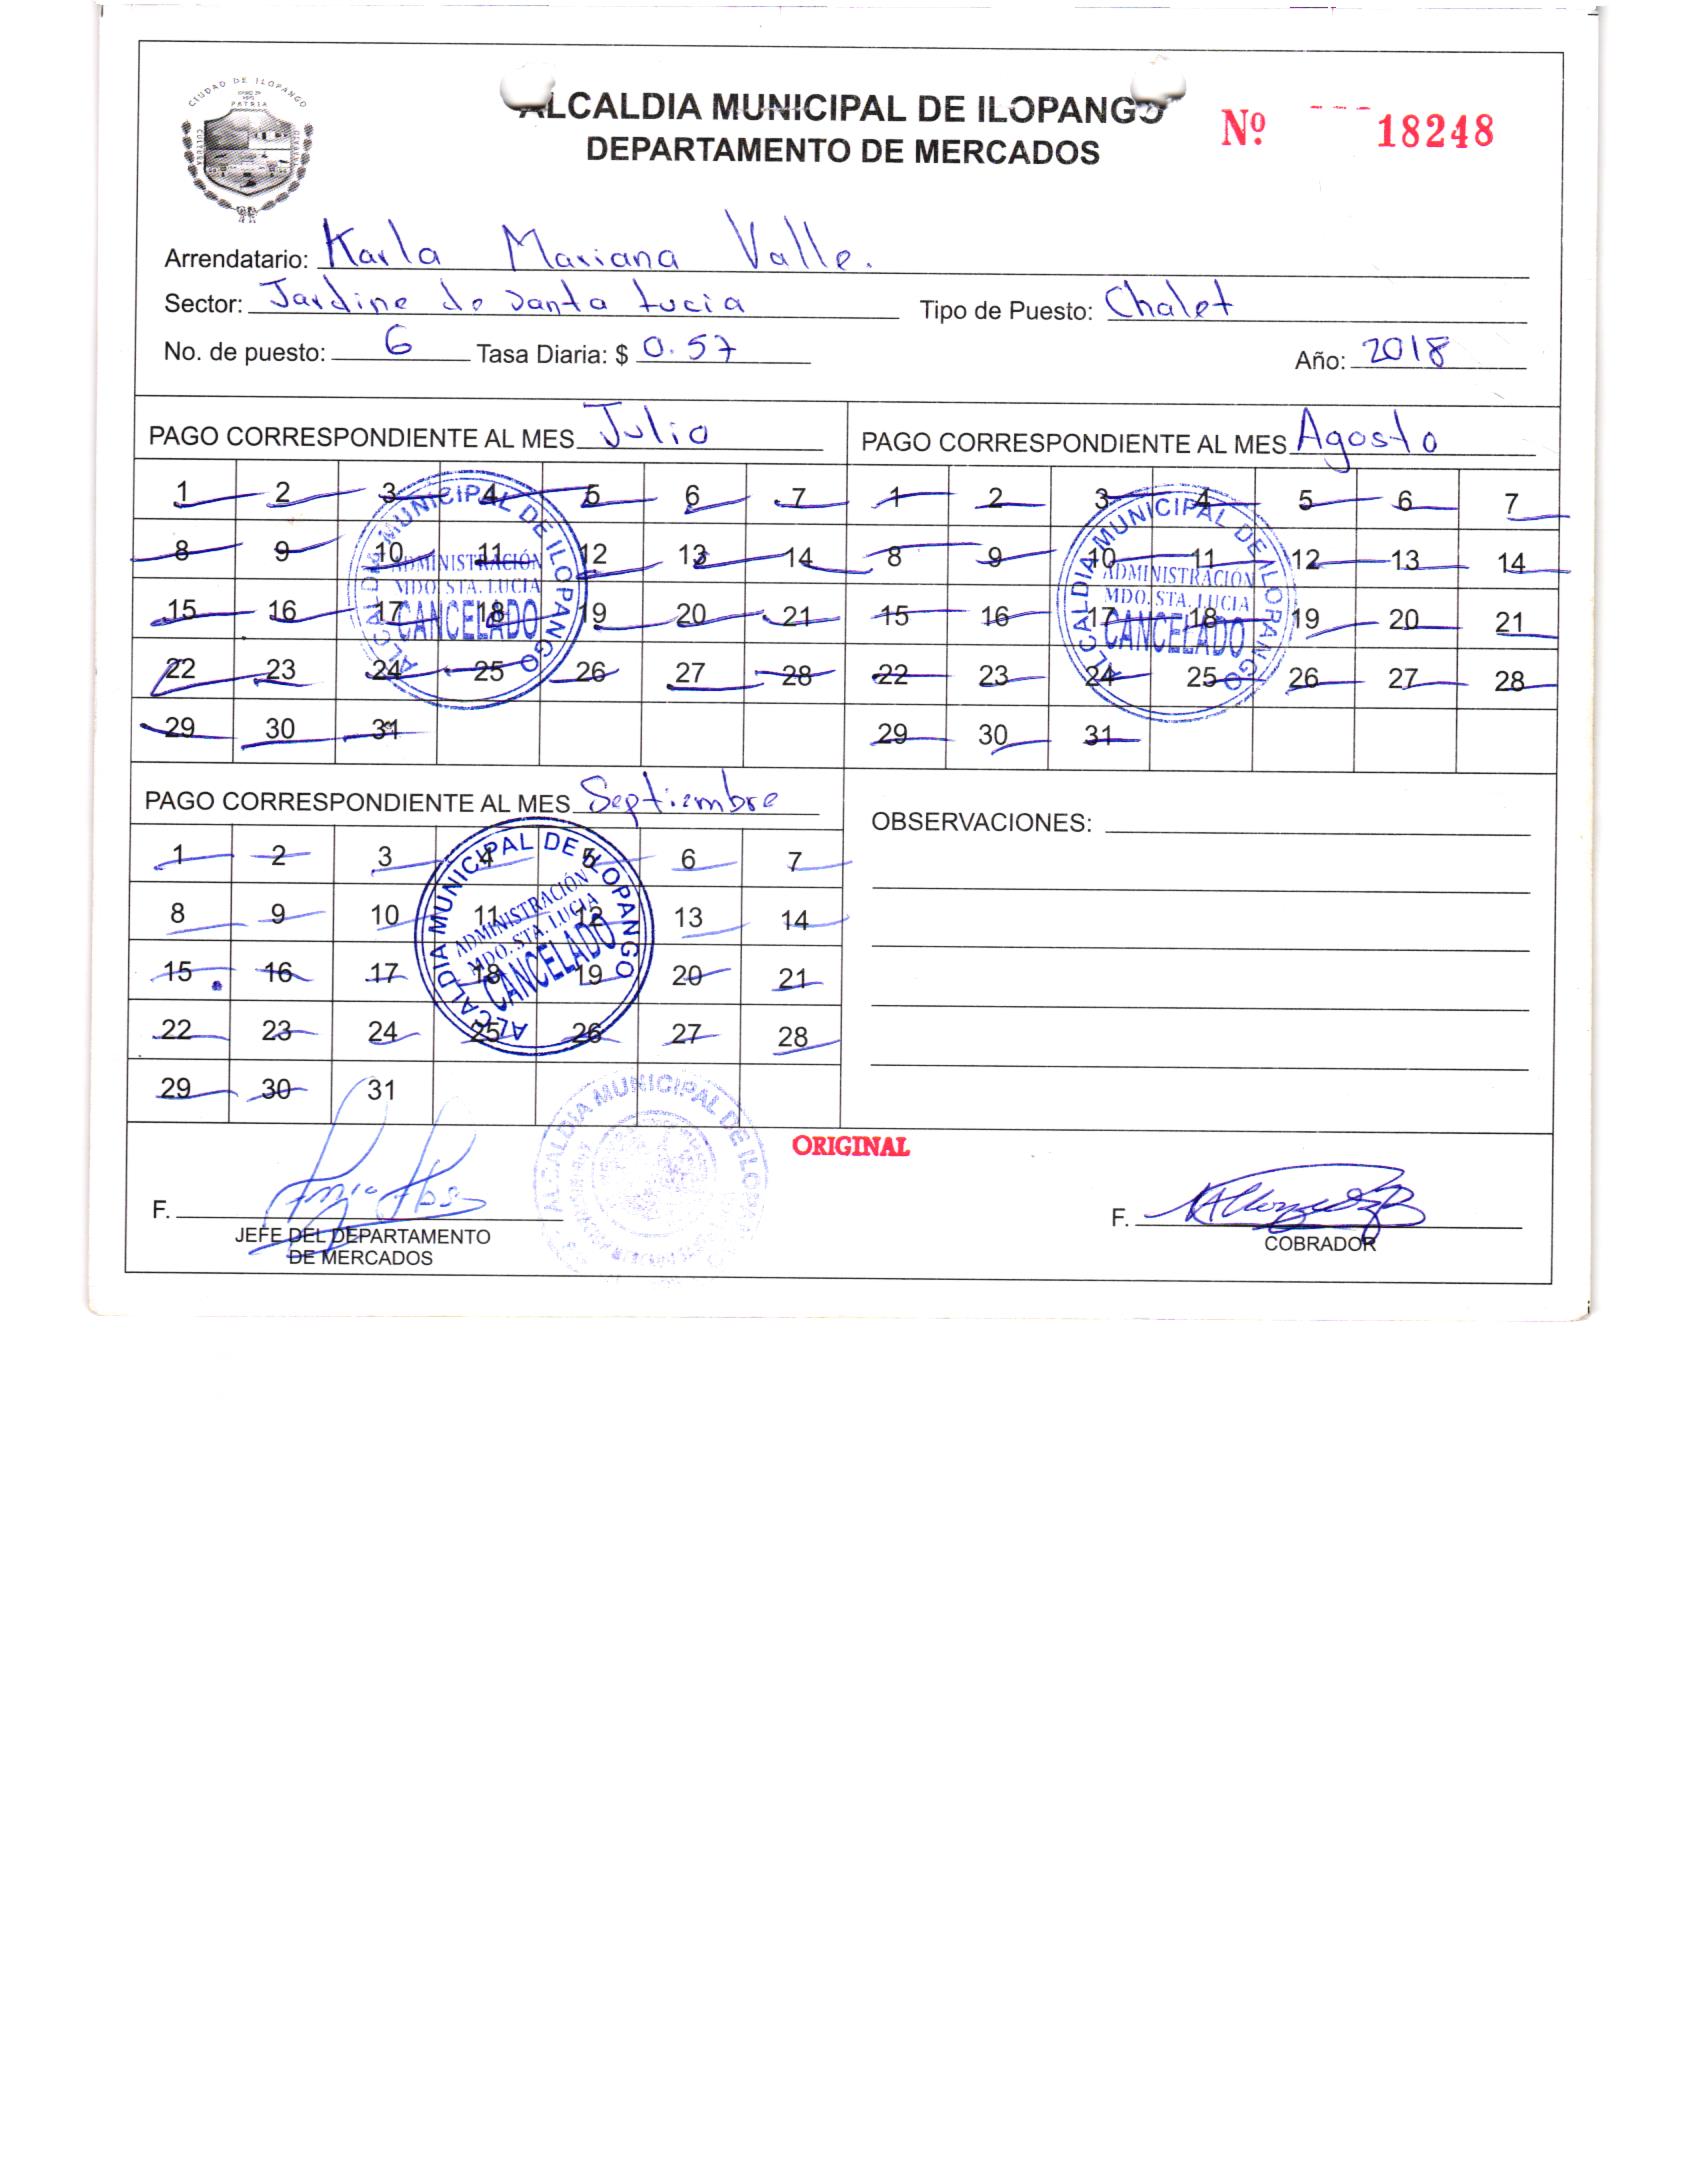 CIUDAD DE ILOPANGO
PATRIA
CULTURA
ALCALDIA MUNICIPAL DE ILOPANGO
DEPARTAMENTO DE MERCADOS
Nº 18248
Arrendatario: Karla Mariana Valle.
Sector: Jardine de Santa Lucia Tipo de Puesto: Chalet
No. de puesto: 6 Tasa Diaria: $ 0.57 Año: 2018
PAGO CORRESPONDIENTE AL MES Julio
1 2 3 4 5 6 7
8 9 10 11 12 13 14
15 16 17 18 19 20 21
22 23 24 25 26 27 28
29 30 31
ALCALDIA MUNICIPAL DE ILOPANGO
ADMINISTRACIÓN
MDO. STA. LUCIA
CANCELADO
PAGO CORRESPONDIENTE AL MES Agosto
1 2 3 4 5 6 7
8 9 10 11 12 13 14
15 16 17 18 19 20 21
22 23 24 25 26 27 28
29 30 31
ALCALDIA MUNICIPAL DE ILOPANGO
ADMINISTRACIÓN
MDO. STA. LUCIA
CANCELADO
PAGO CORRESPONDIENTE AL MES Septiembre
1 2 3 4 5 6 7
8 9 10 11 12 13 14
15 16 17 18 19 20 21
22 23 24 25 26 27 28
29 30 31
ALCALDIA MUNICIPAL DE ILOPANGO
ADMINISTRACIÓN
MDO. STA. LUCIA
CANCELADO
OBSERVACIONES:
ALCALDIA MUNICIPAL DE ILOPANGO
ORIGINAL
F.
JEFE DEL DEPARTAMENTO
DE MERCADOS
F.
COBRADOR